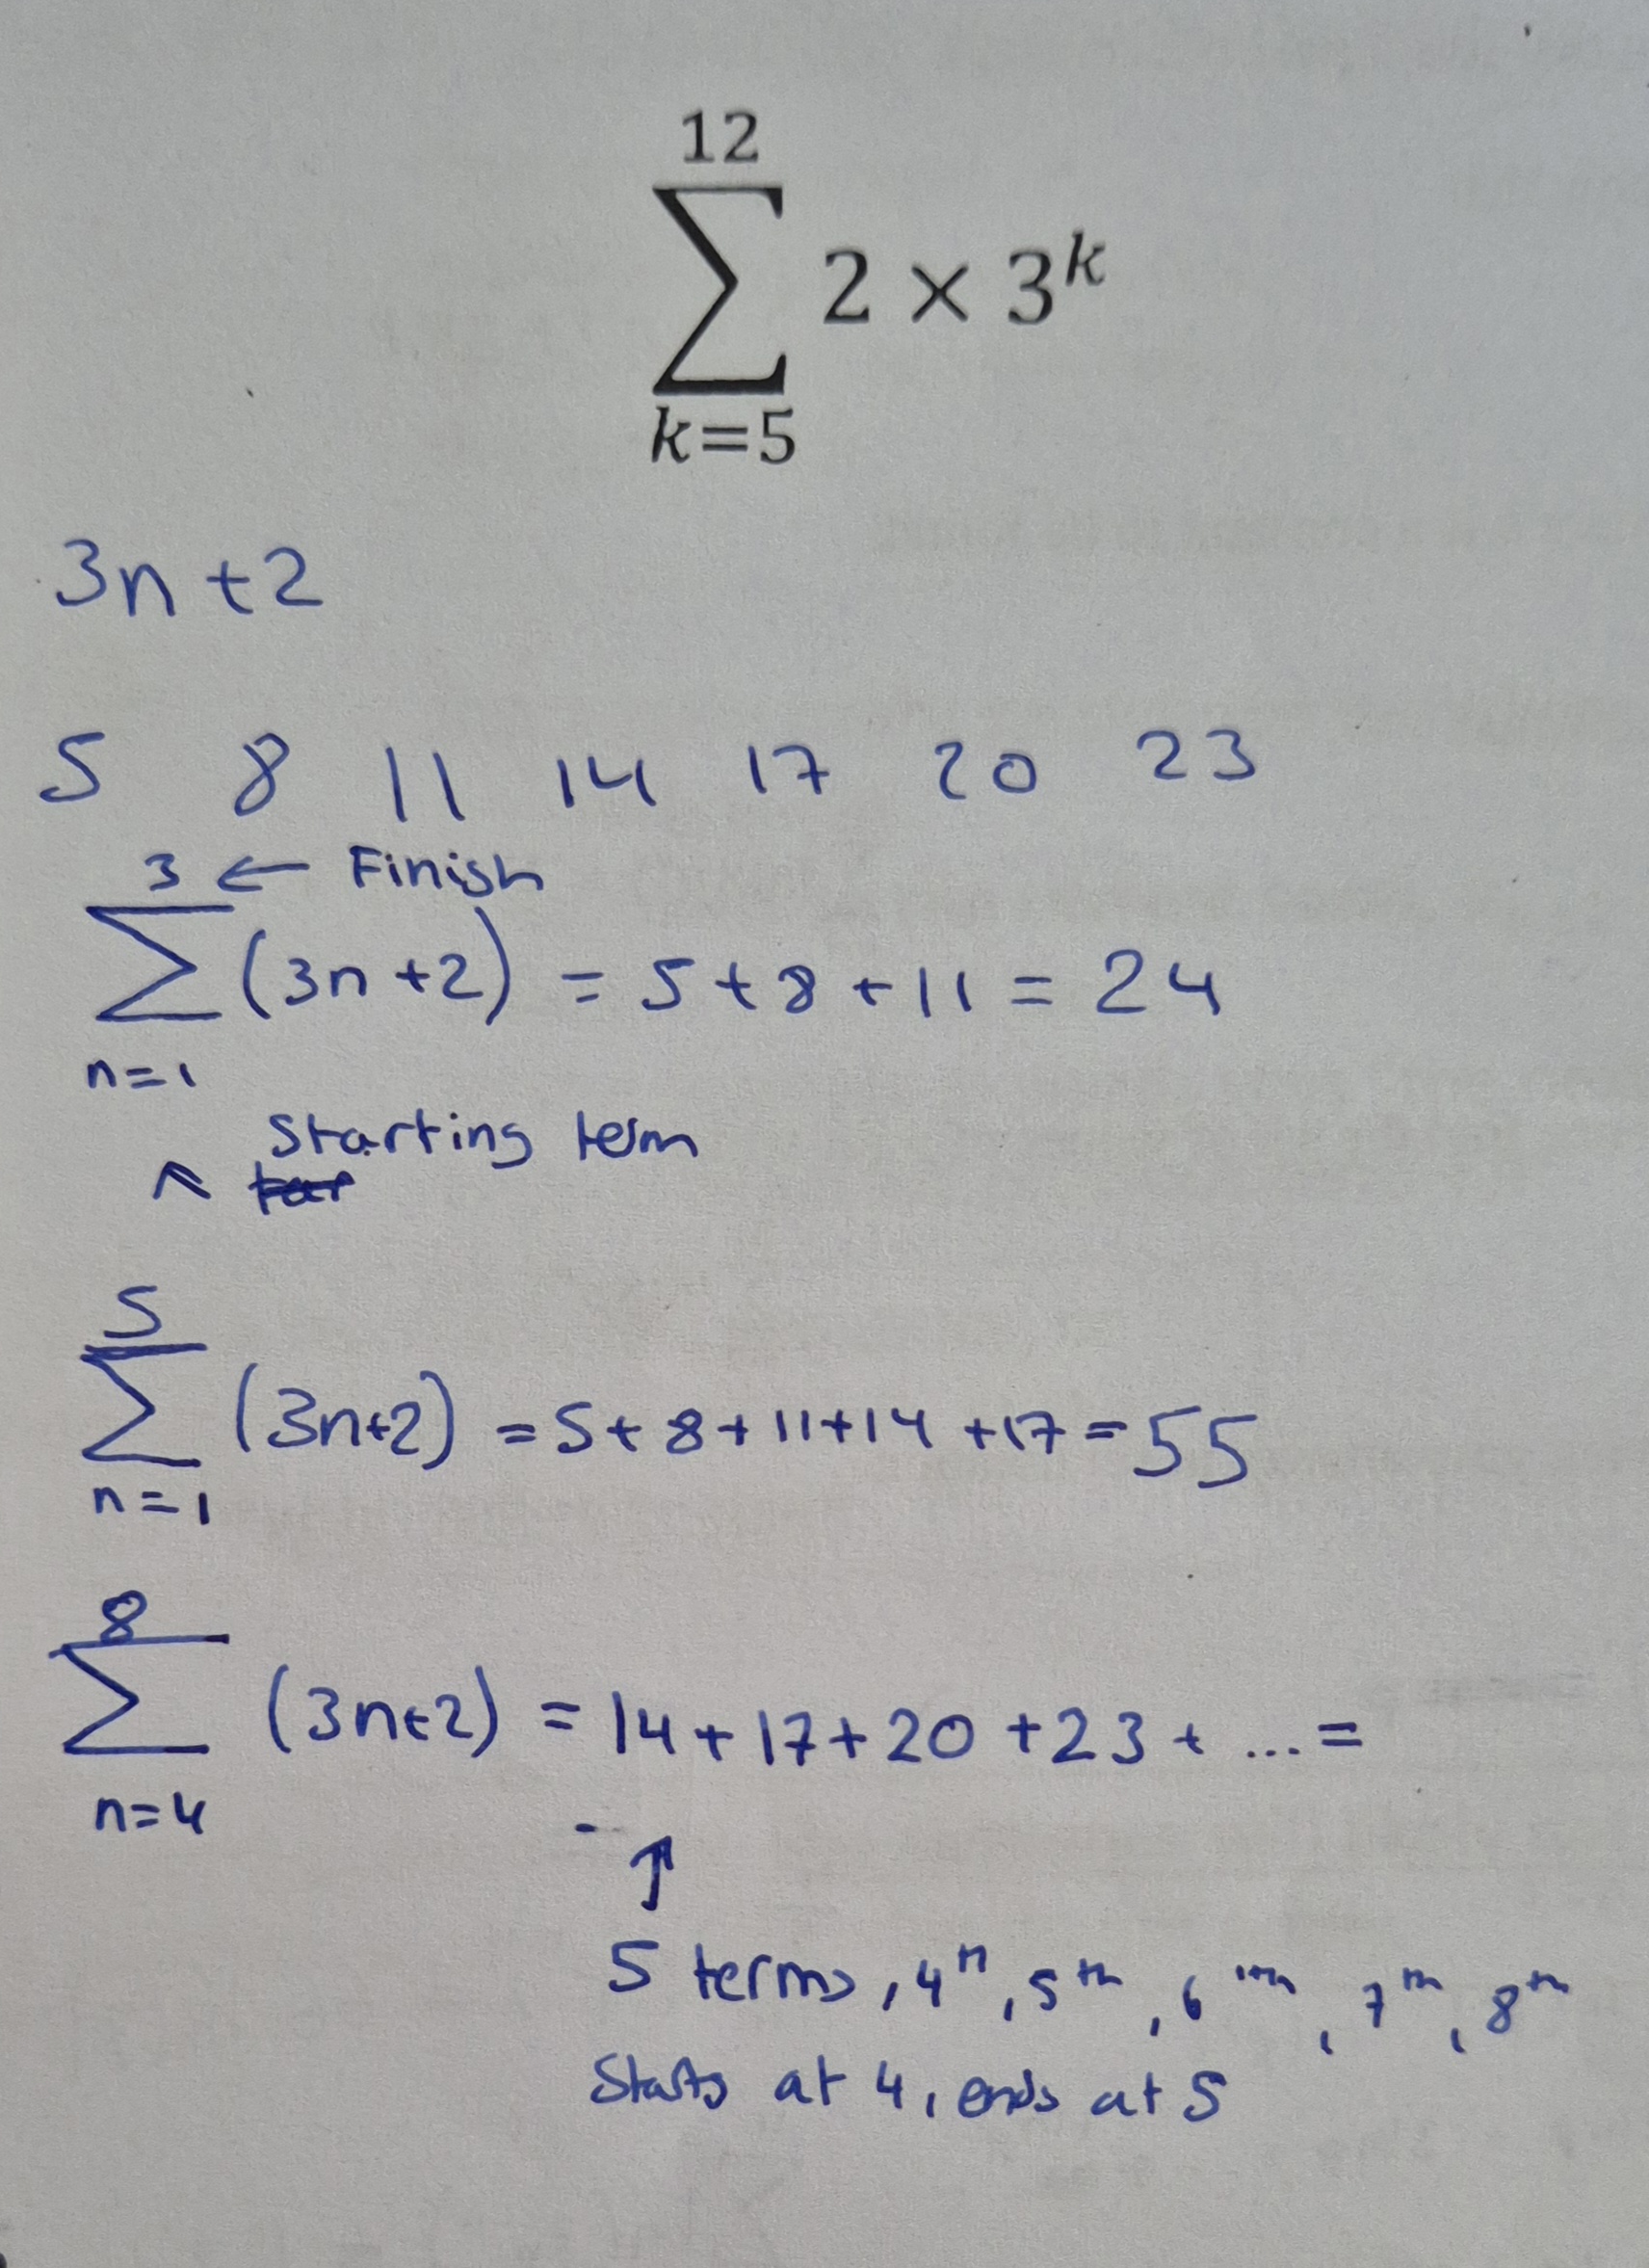 12
∑ 2 × 3^k
k=5
3n + 2
5 8 11 14 17 20 23
3 ← Finish
∑ (3n + 2) = 5 + 8 + 11 = 24
n = 1
Starting term
↖
5
∑ (3n+2) = 5 + 8 + 11 + 14 + 17 = 55
n = 1
8
∑ (3n+2) = 14 + 17 + 20 + 23 + ... =
n = 4
↑
5 terms, 4th, 5th, 6th, 7th, 8th
Starts at 4, ends at 5